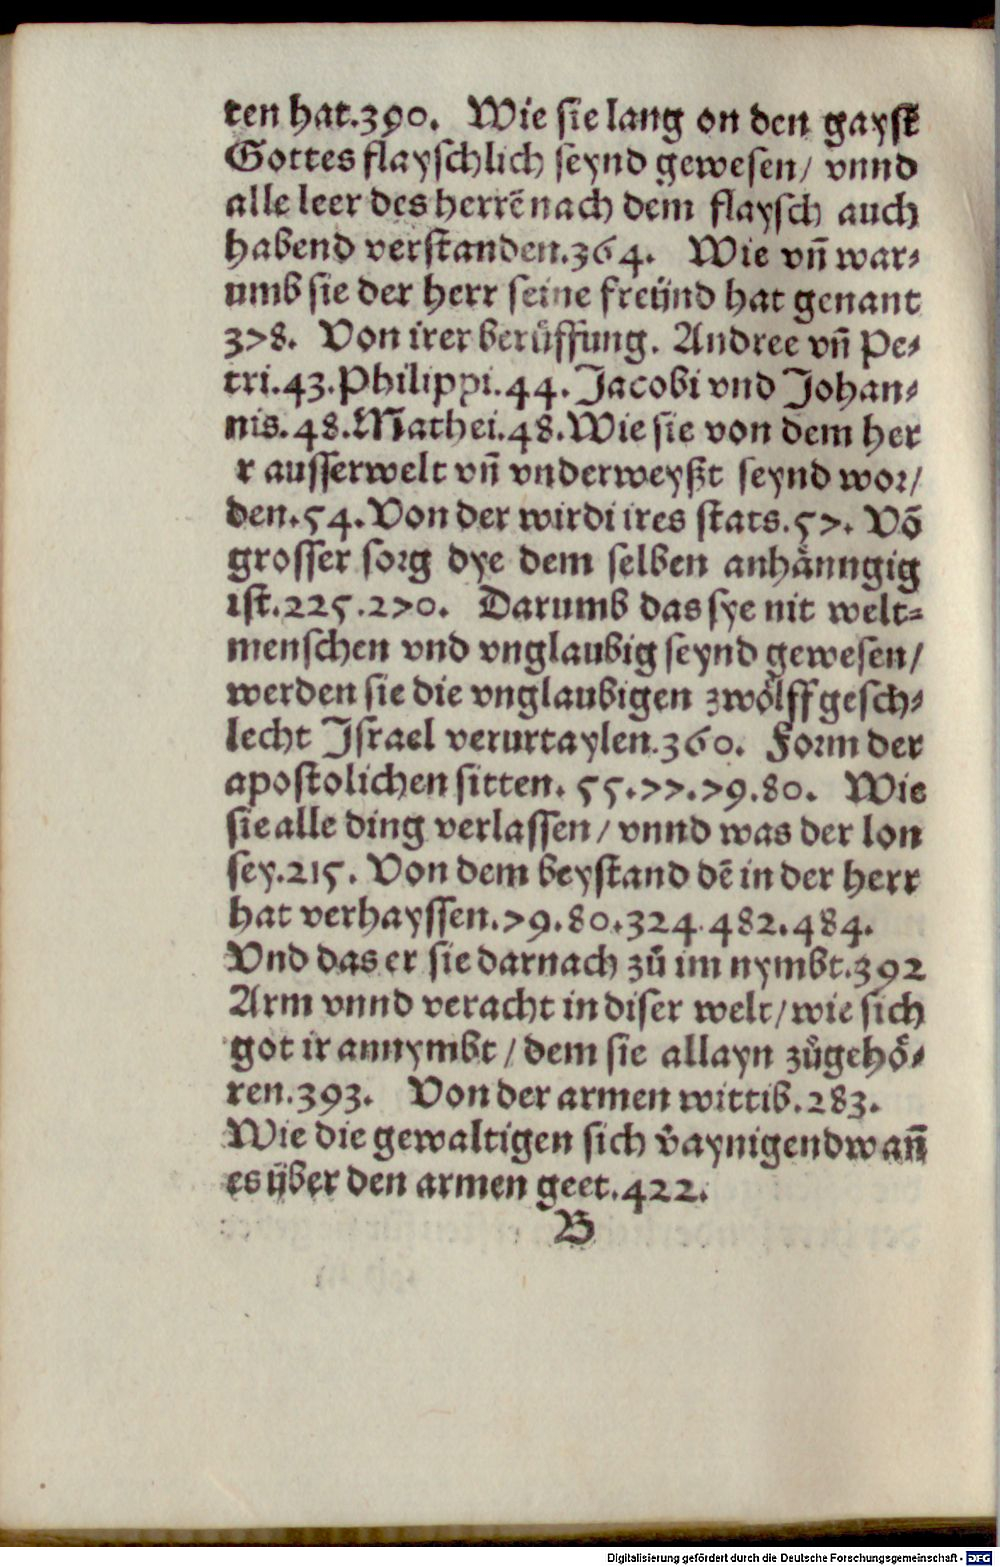 ten hat.390. Wie sie lang on den gayst
Gottes flayschlich seynd gewesen/ vnnd
alle leer des herrē nach dem flaysch auch
habend verstanden.364. Wie vñ war⸗
umb sie der herr seine freünd hat genant
378. Von irer berůffung. Andree vñ Pe⸗
tri.43.Philippi.44.Jacobi vnd Johan⸗
nis.48.Mathei.48.Wie sie von dem her
r ausserwelt vñ vnderweyßt seynd wor/
den.54.Von der wirdi ires stats.57. Võ
grosser sorg dye dem selben anhänngig
ist.225.270. Darumb das sye nit welt⸗
menschen vnd vnglaubig seynd gewesen/
werden sie die vnglaubigen zwölff gesch⸗
lecht Israel verurtaylen.360. Form der
apostolichen sitten. 55.77.79.80. Wie
sie alle ding verlassen/ vnnd was der lon
sey.215. Von dem beystand dē in der herr
hat verhayssen.79.80.324.482.484.
Vnd das er sie darnach zů im nymbt.392
Arm vnnd veracht in diser welt/wie sich
got ir annymbt/ dem sie allayn zůgehö⸗
ren.393. Von der armen wittib.283.
Wie die gewaltigen sich v̄aynigend wañ
es über den armen geet.422.
B
Digitalisierung gefördert durch die Deutsche Forschungsgemeinschaft - DFG